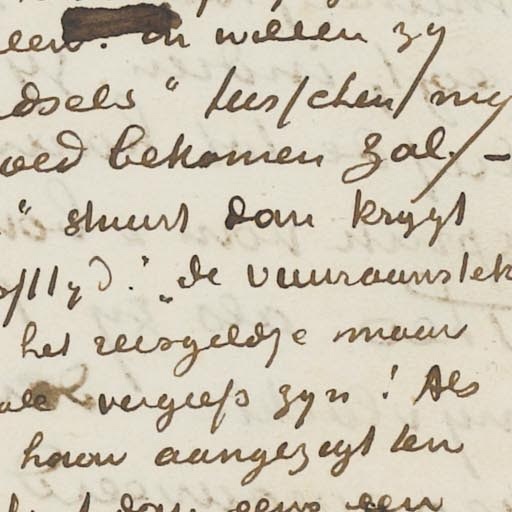 een. en willen zy
dsels" tusschen my
oed bekomen zal. –
" stuurt dan krygt
stlyd." de vuuraanstek
het reisgeldje maar
vergeefs zyn! Als
haar aangezegt ten
dan eens een